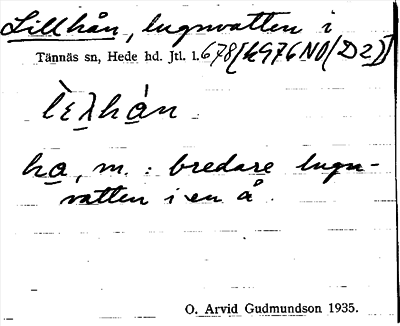 Lillhån, lugnvatten i
Tännäs sn, Hede hd. Jtl. l. 678 [K976NO(D2)]
lɛλhån
ha, m. : bredare lugn-
vatten i en å.
O. Arvid Gudmundson 1935.